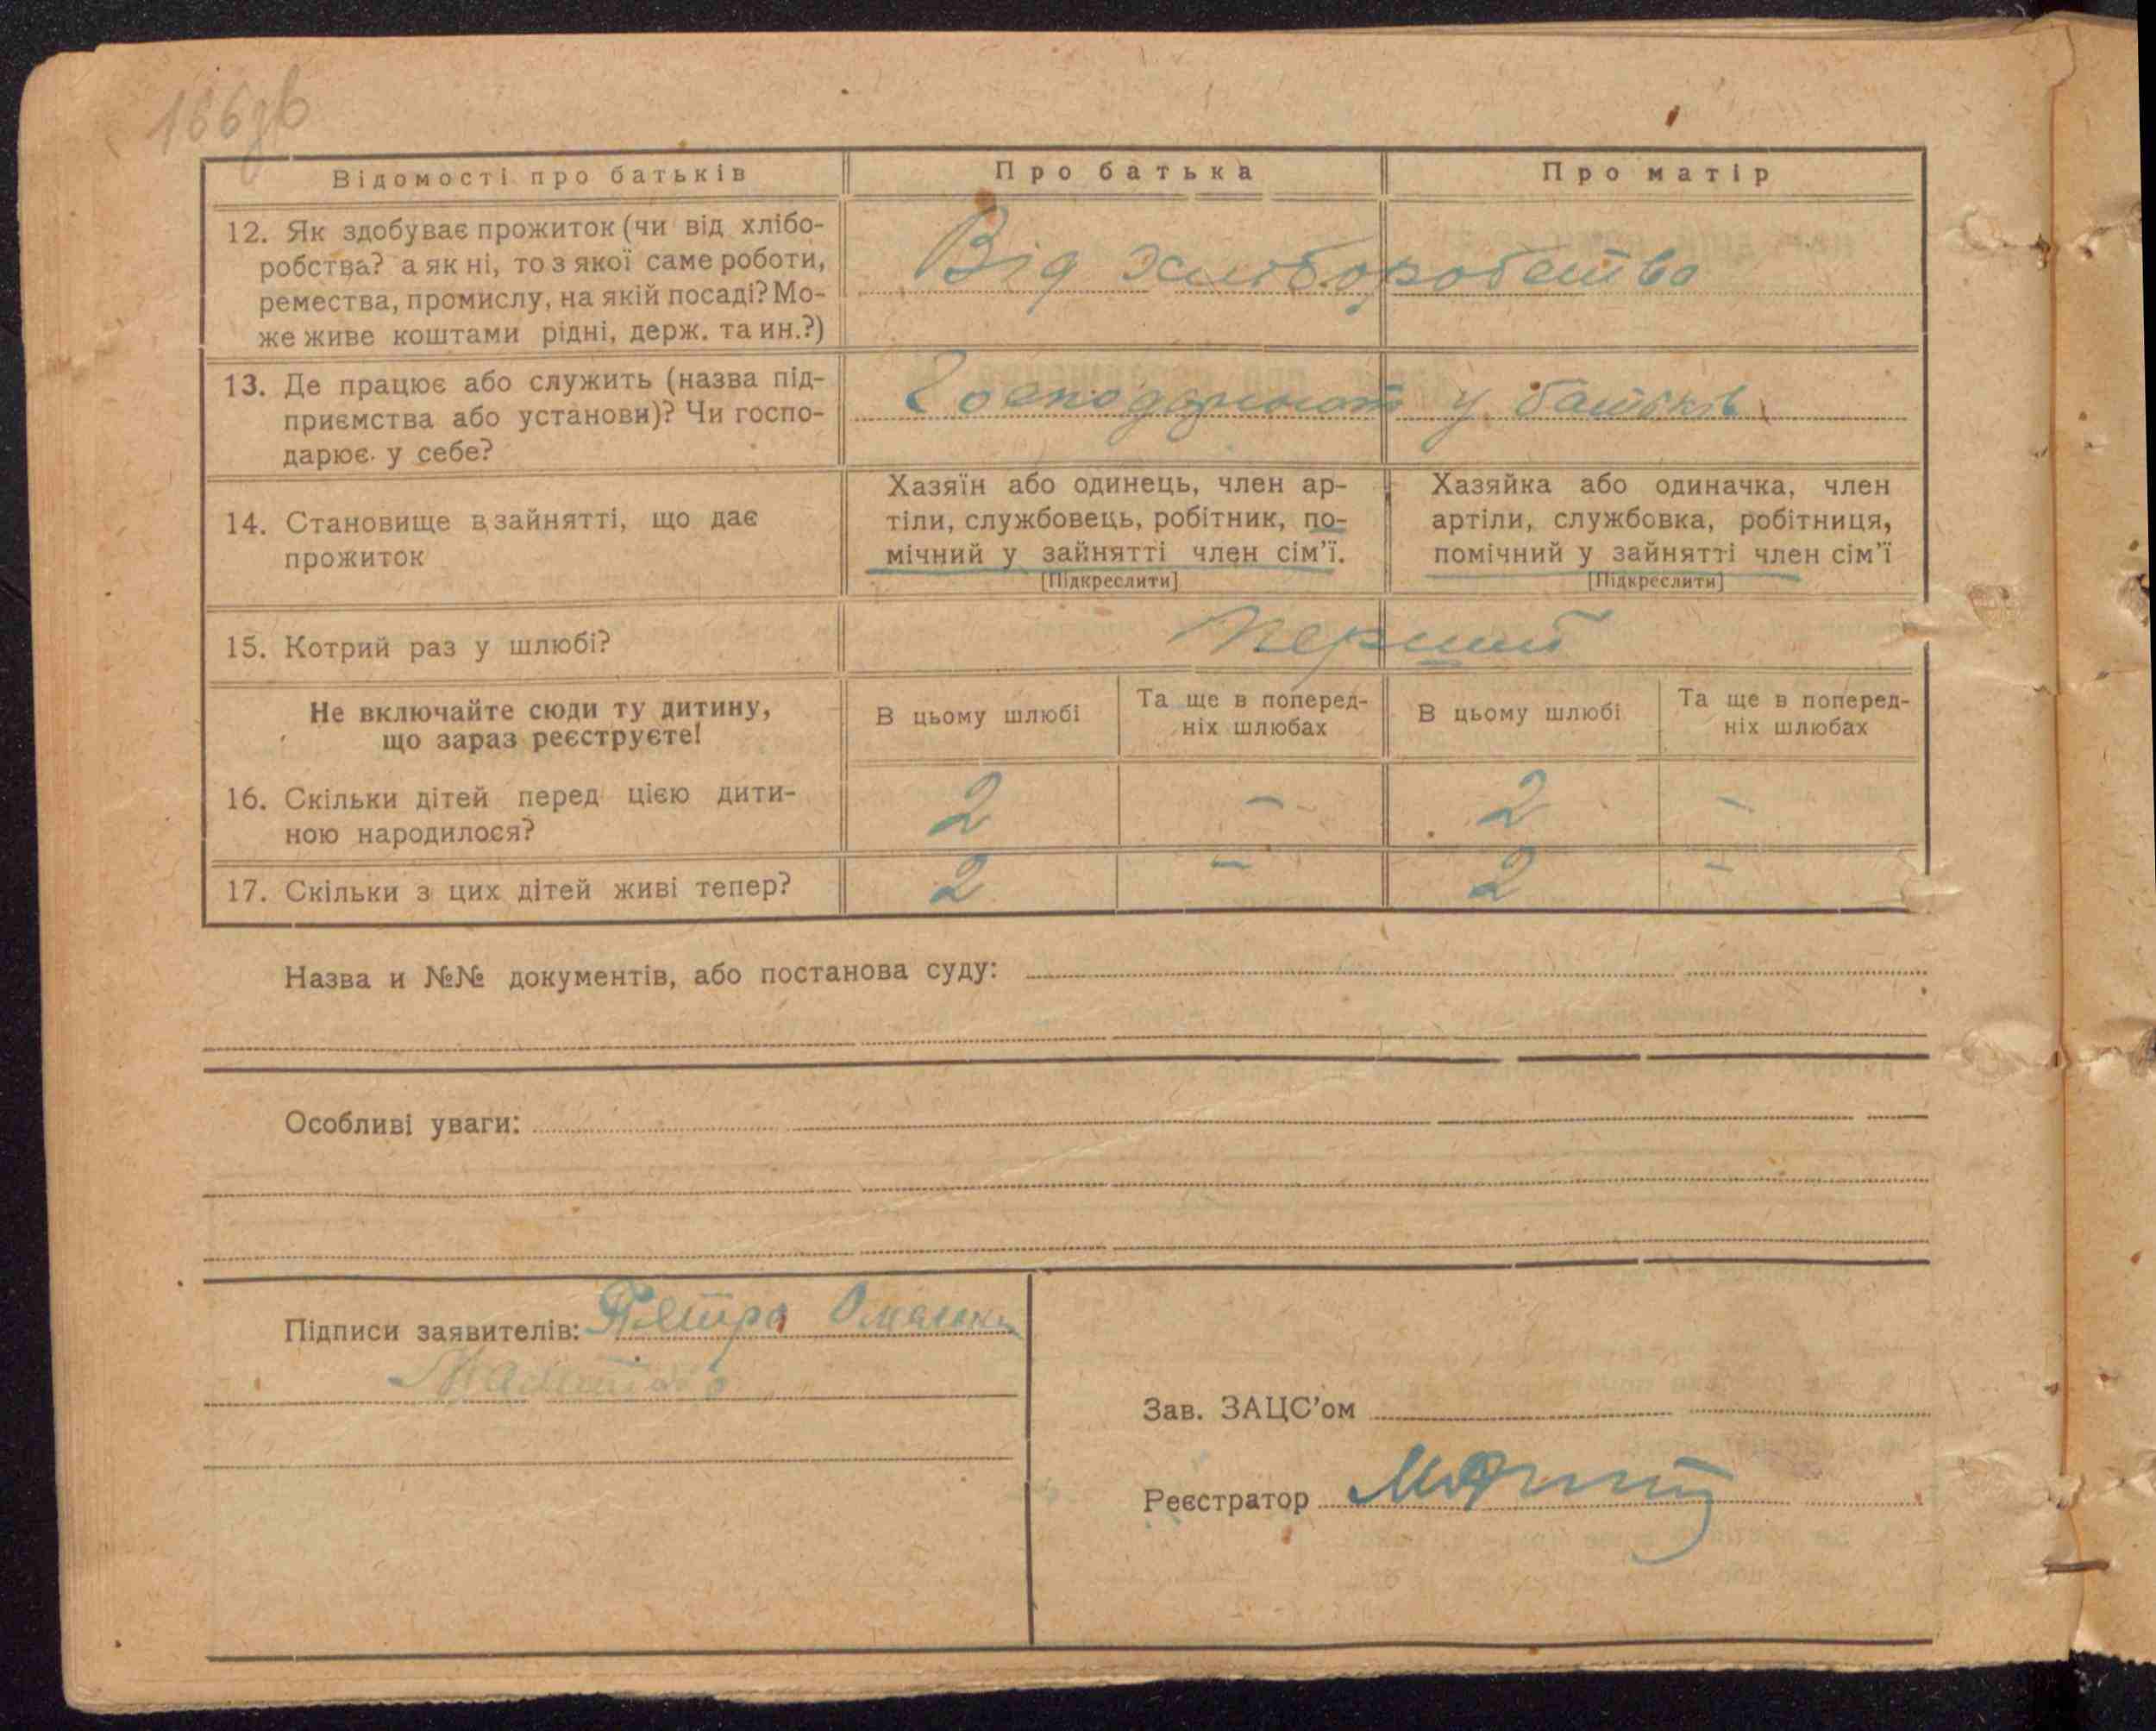 Відомості про батьків
Про батька
Про матір
12. Як здобуває прожиток (чи від хлібо-
робства? а як ні, то з якої саме роботи,
ремества, промислу, на якій посаді? Мо-
же живе коштами рідні, держ. та ин.?)
Від хліборобства
13. Де працює або служить (назва під-
приємства або установи)? Чи госпо-
дарює у себе?
Господарюют у батьків
14. Становище в занятті, що дає
прожиток
Хазяїн або одинець, член ар-
тіли, службовець, робітник, по-
мічний у зайнятті член сім'ї.
[Підкреслити]
Хазяйка або одиначка, член
артіли, службовка, робітниця,
помічний у зайнятті член сім'ї
[Підкреслити]
15. Котрий раз у шлюбі?
Перший
Не включайте сюди ту дитину,
що зараз реєструєте!
В цьому шлюбі
Та ще в поперед-
ніх шлюбах
В цьому шлюбі
Та ще в поперед-
ніх шлюбах
16. Скільки дітей перед цією дити-
ною народилося?
2 – 2 –
17. Скільки з цих дітей живі тепер?
2 – 2 –
Назва и №№ документів, або постанова суду:
Особливі уваги:
Підписи заявителів:
Зав. ЗАЦС'ом
Реєстратор